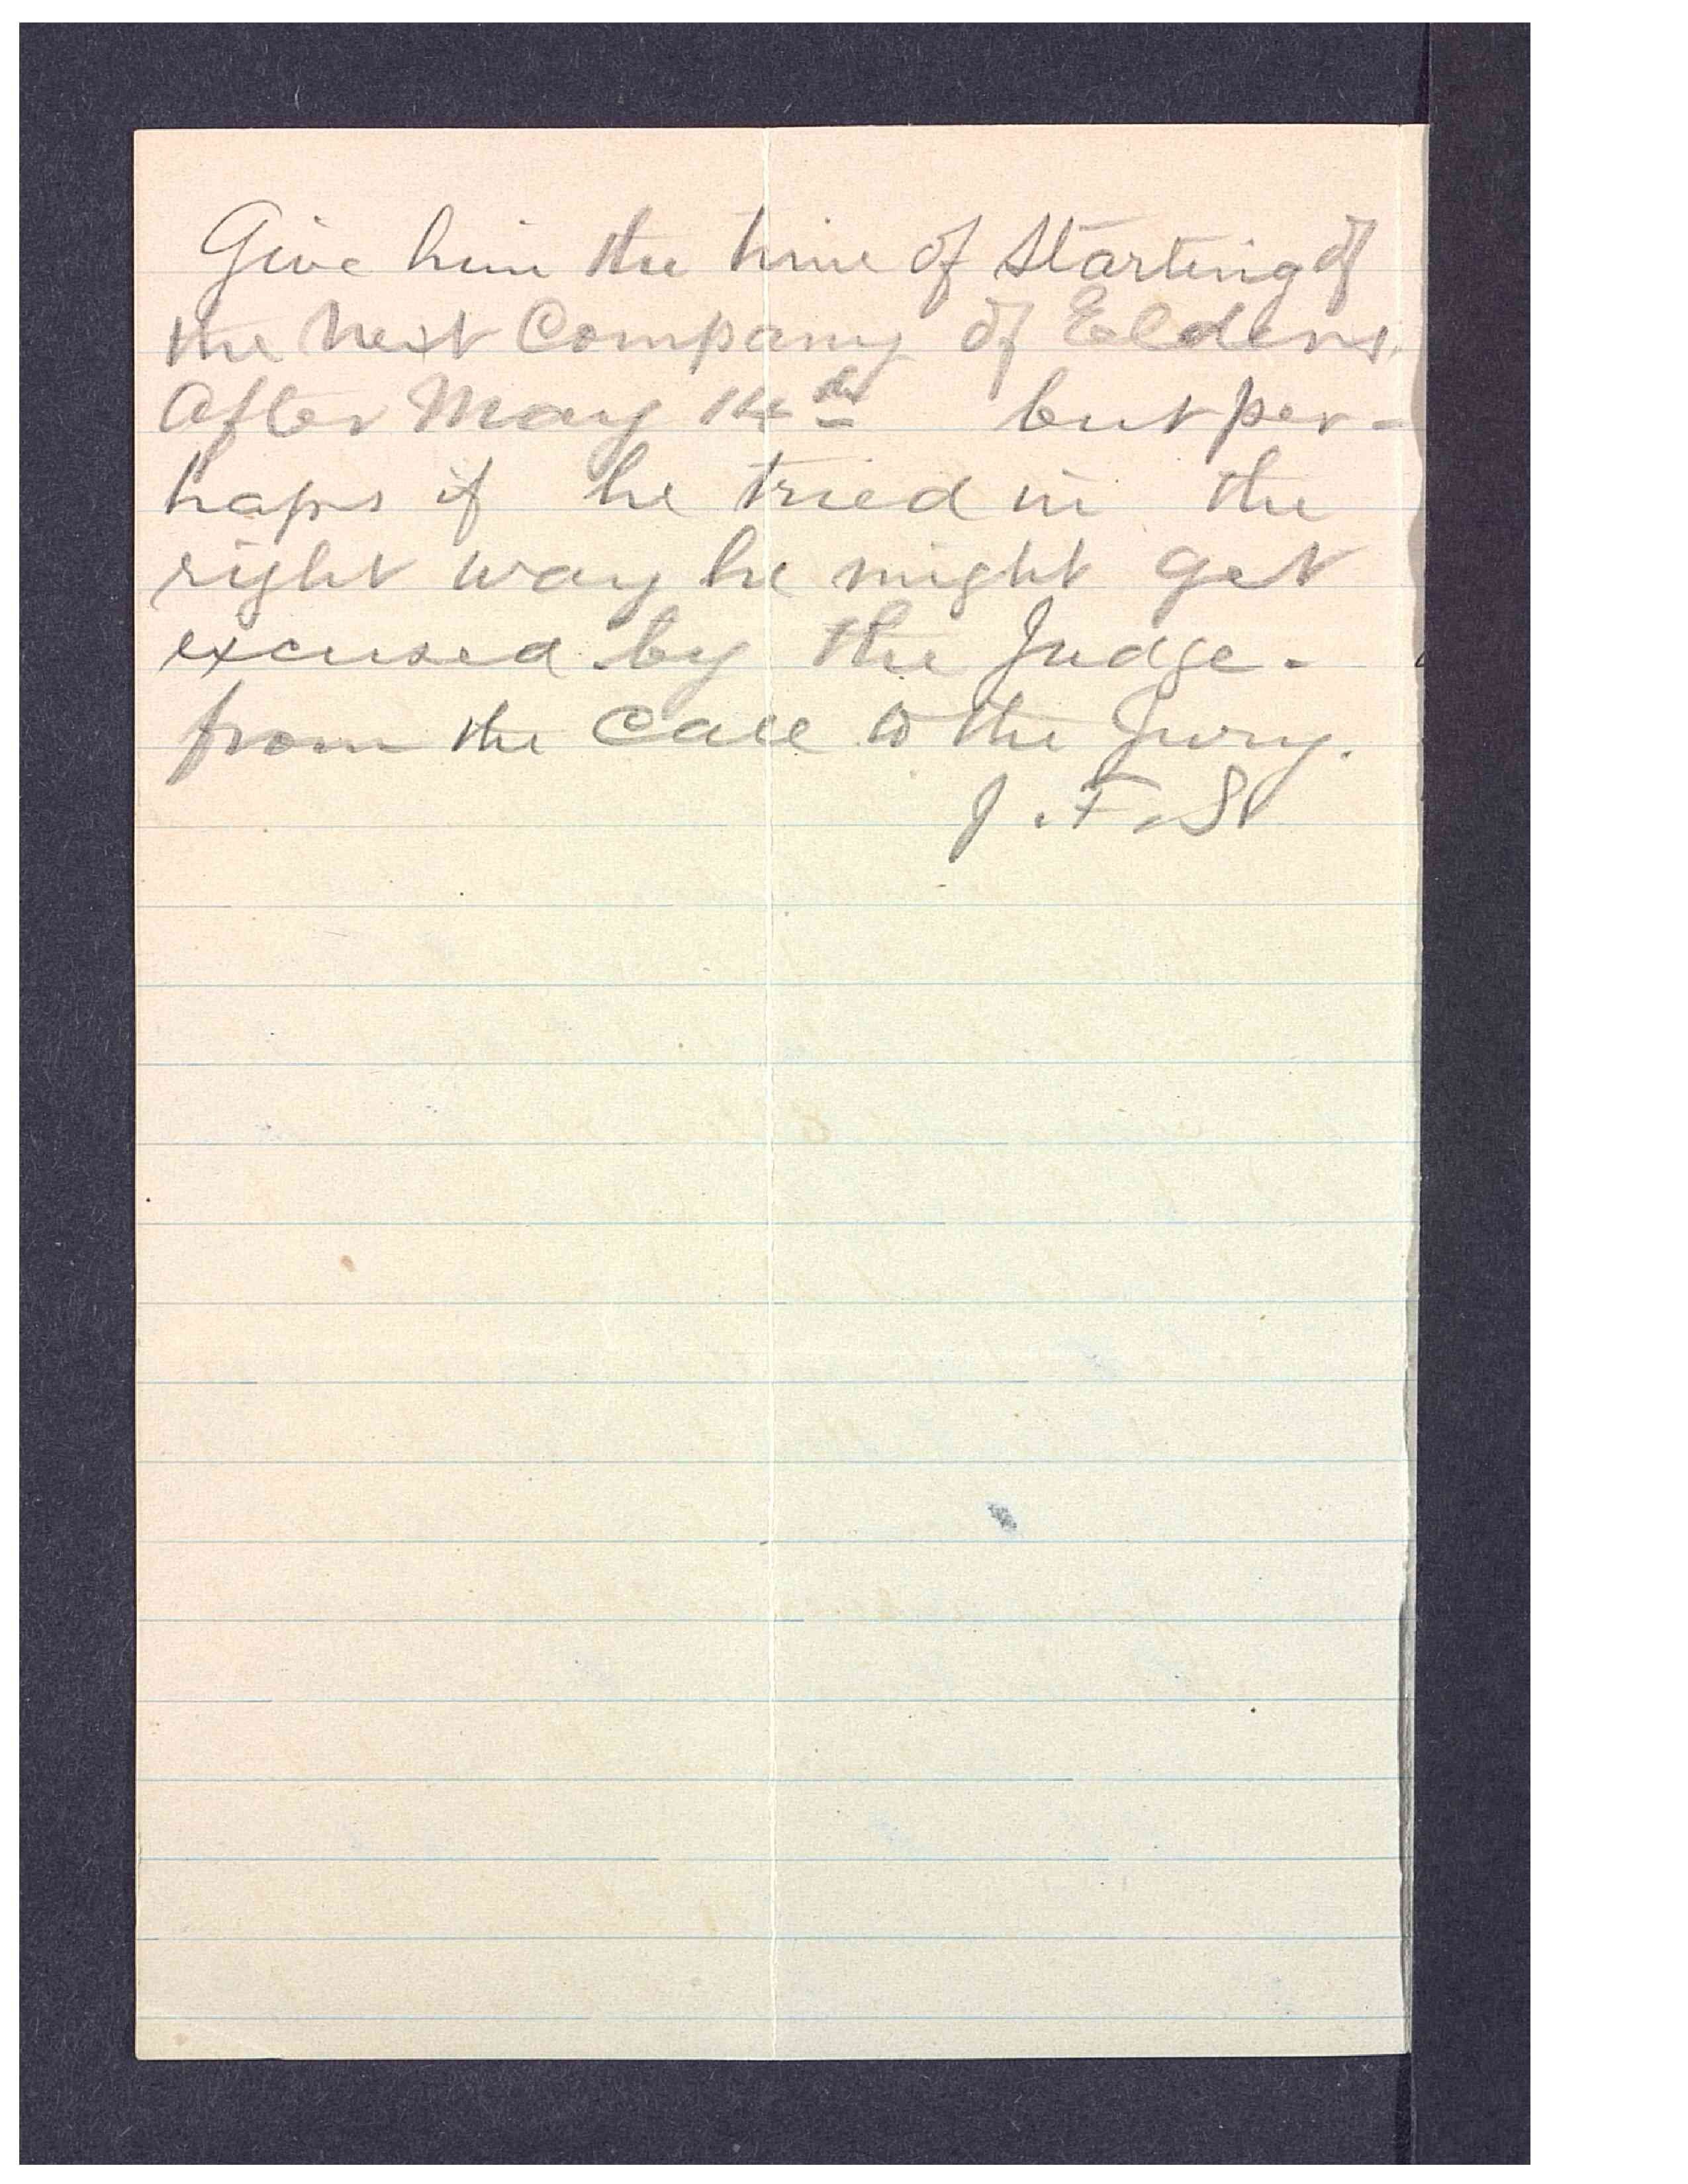 Give him the time of Starting of
the next Company of Elders.
After May 14th but per-
haps if he tried in the
right way he might get
excused by the Judge -
from the Call to the Jury.
J. F. S